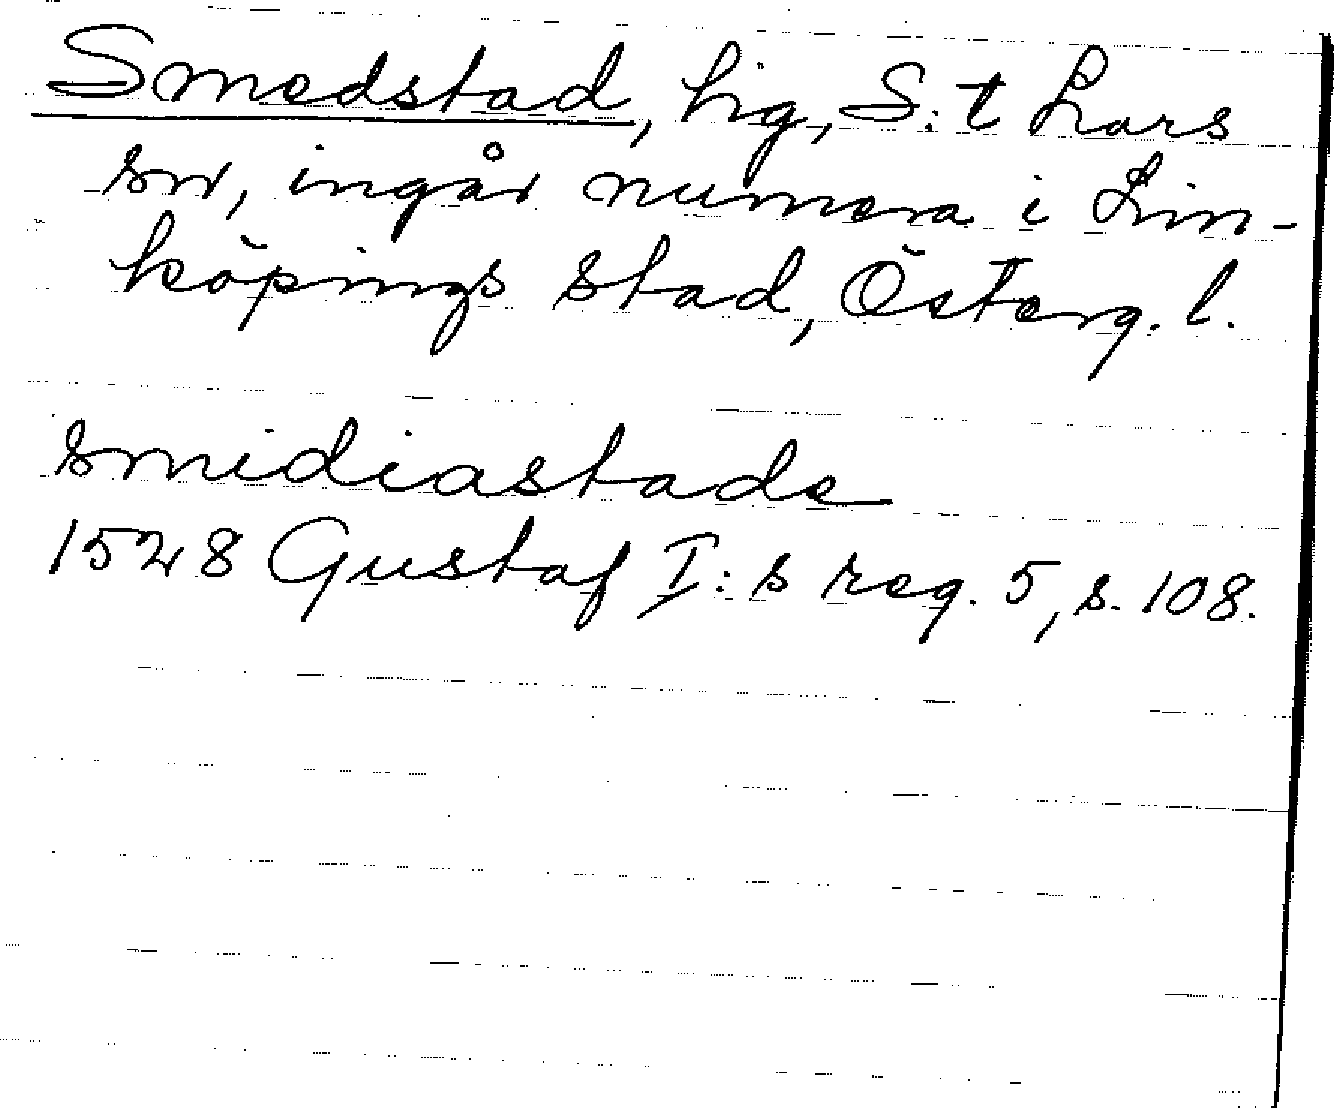 Smedstad, hg, S:t Lars
sn, ingår numera i Lin-
köpings stad, Österg. l.
smidiastade
1528 Gustaf I:s reg. 5, s. 108.